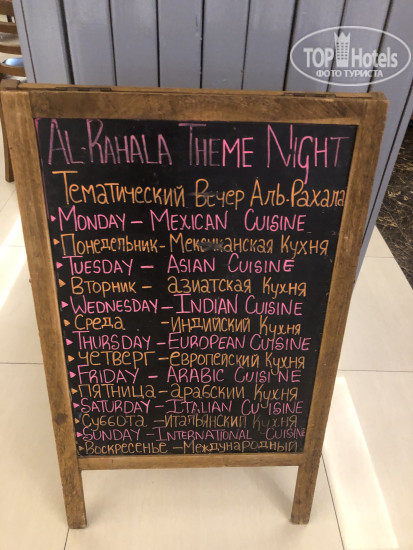 TOP Hotels
ФОТО ТУРИСТА
AL-RAHALA THEME NIGHT
Тематический Вечер Аль-Рахала
MONDAY – MEXICAN CUISINE
Понедельник - Мексиканская Кухня
TUESDAY – ASIAN CUISINE
Вторник - азиатская Кухня
WEDNESDAY – INDIAN CUISINE
Среда - Индийский Кухня
THURSDAY – EUROPEAN CUISINE
четверг - европейский Кухня
FRIDAY – ARABIC CUISINE
пятница - арабский Кухня
SATURDAY – ITALIAN CUISINE
Суббота - Итальянский Кухня
SUNDAY – INTERNATIONAL CUISINE
Воскресенье - Международный